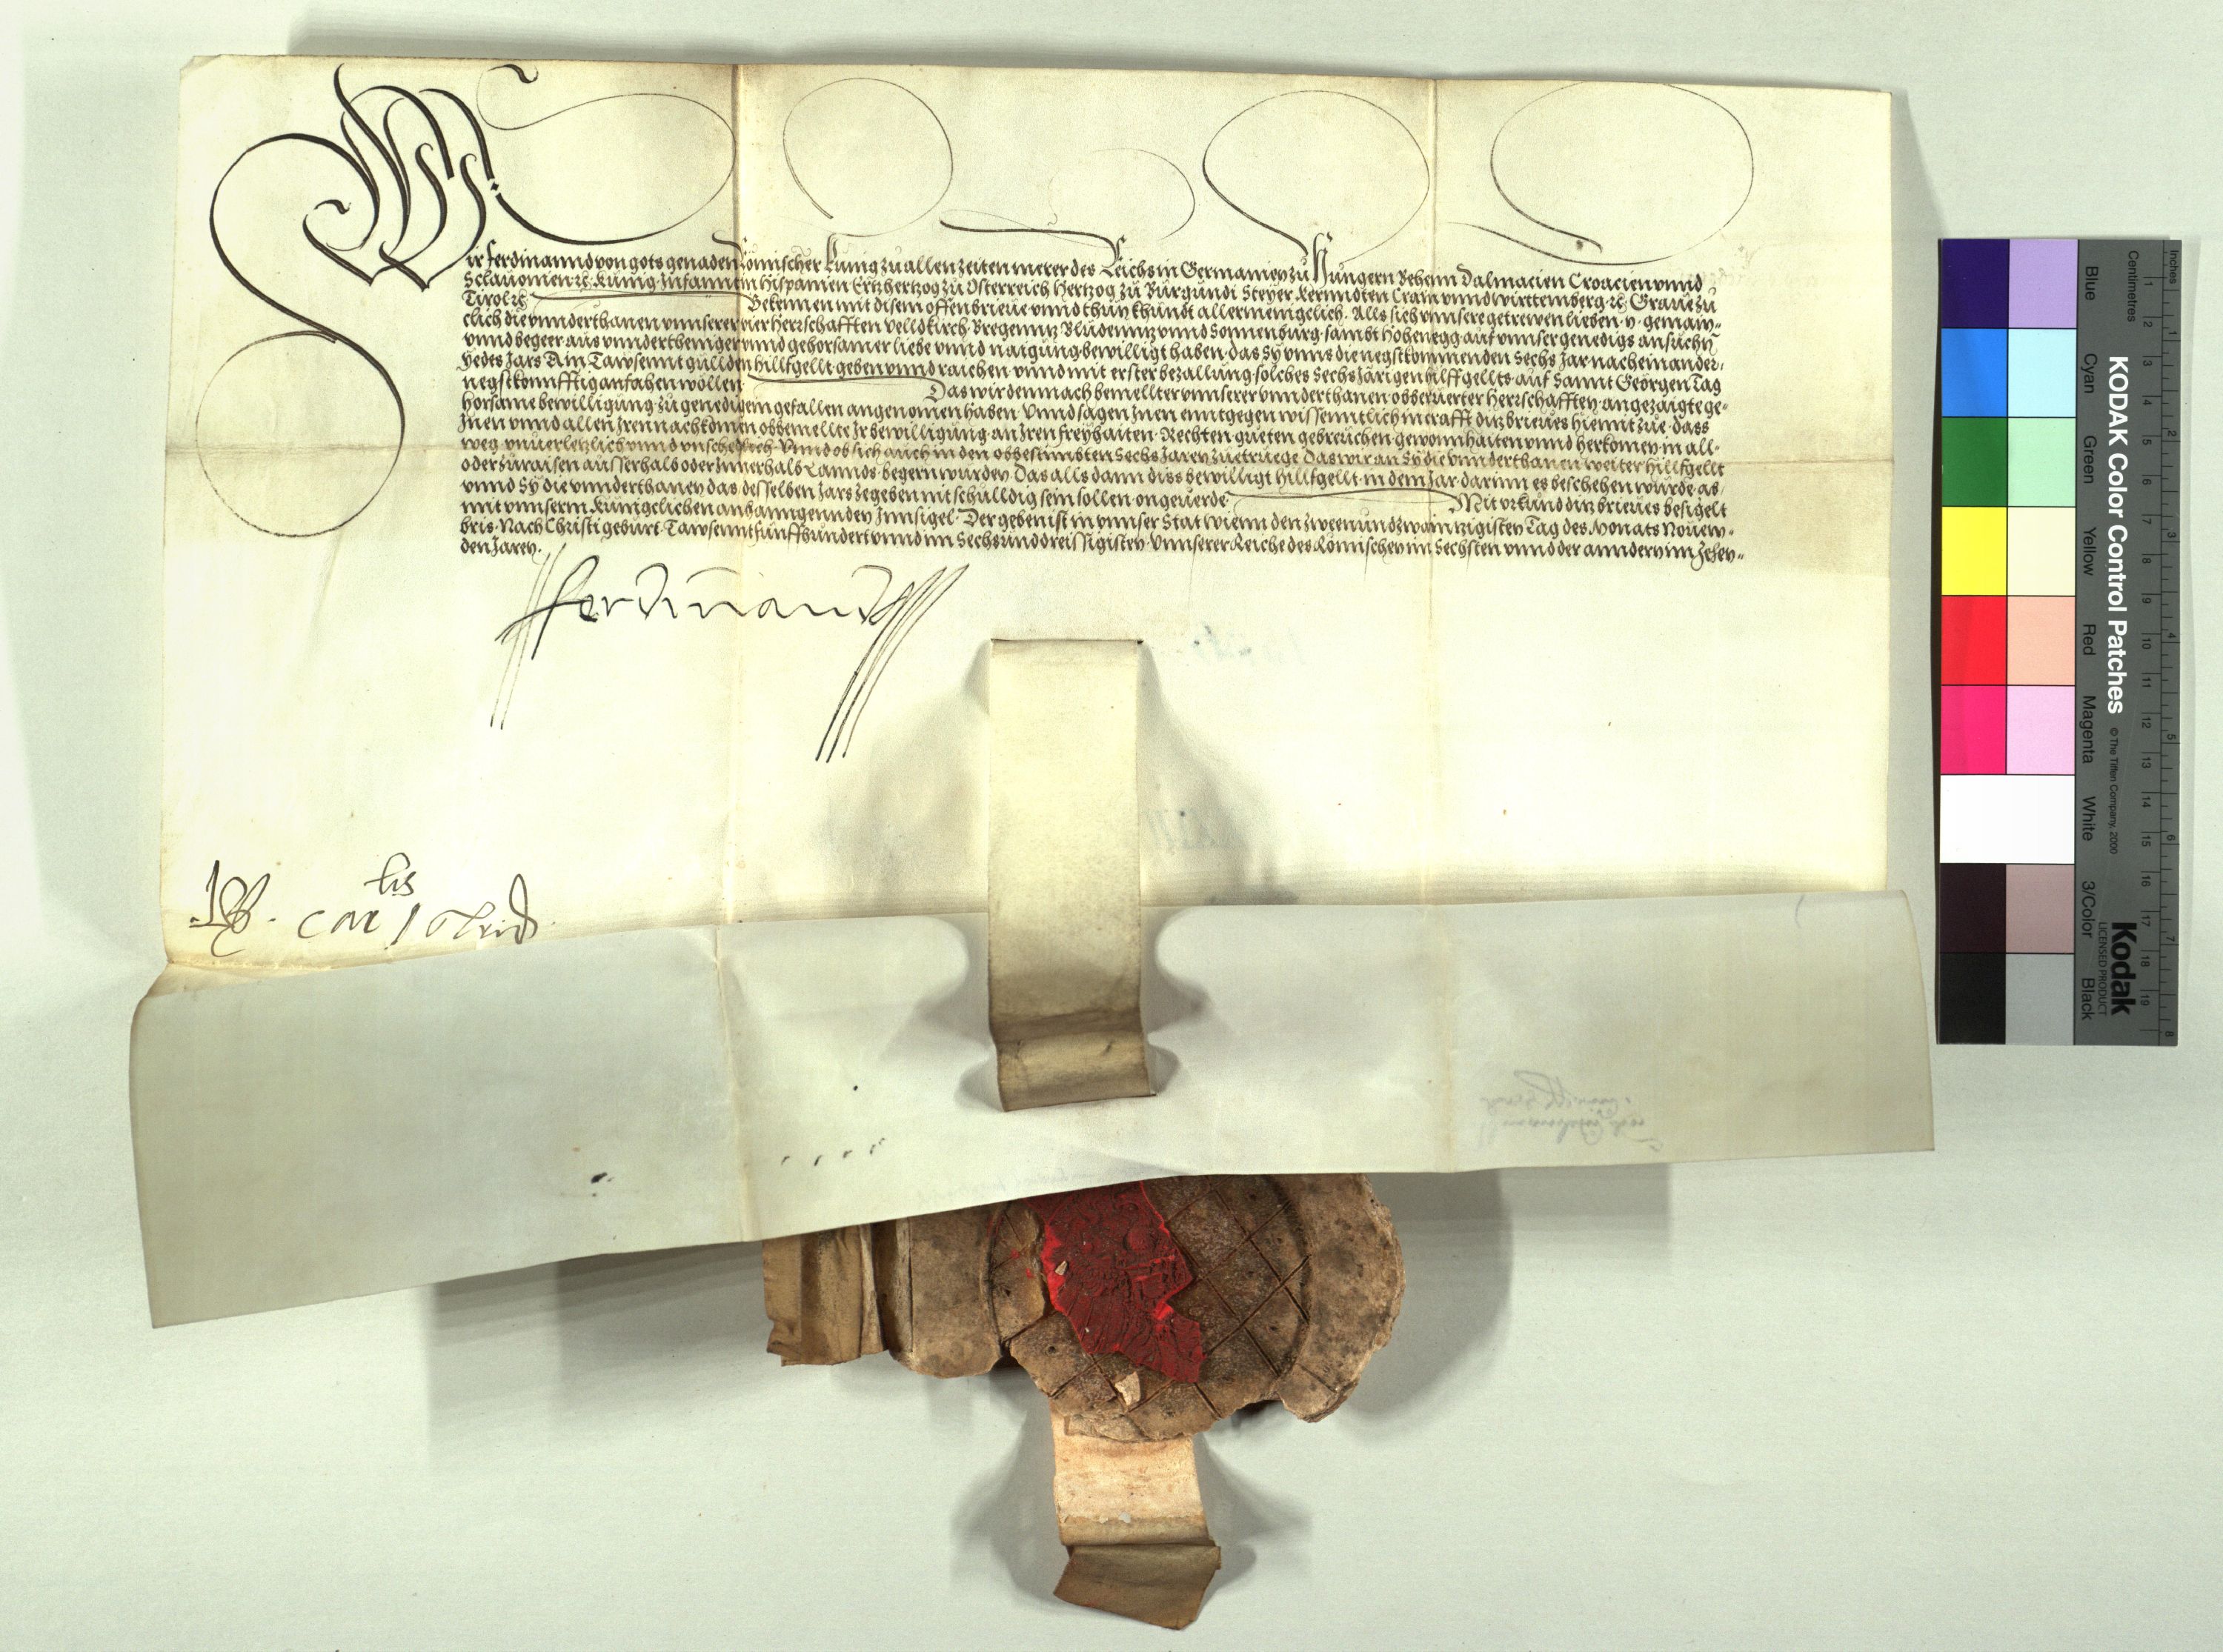 Wir Ferdinannd von gots genaden Römischer Kunig zu allen zeiten merer des Reichs in Germanien zu Hungern Beheim Dalmacien Croacien vnnd
Sclauonien ꝛc. Kunig Infannt in Hispanien Ertzhertzog zu Osterreich Hertzog zu Burgundi Steyer Kernndten Crain vnnd Wirttemberg ꝛc. Graue zu
Tirol ꝛc. Bekennen mit disem offen brieue vnnd thun khundt allermenigclich. Alls sich vnnsere getrewen lieben .N. gemain-
clich die vnnderthanen vnnserer vier Herrschafften Velldkirch. Bregenntz Bludenntz vnnd Sonnenburg. sambt Hohenegg. auf vnnser genedigs ansuchn
vnnd beger aus vnndertheniger vnnd gehorsamer liebe vnnd naigung. bewilligt haben. das Sy vnns die negstkommenden Sechs Jar nacheinander.
Yedes Jars Ain Tawsennt gulden hillfgellt geben vnnd raichen vnnd mit erster bezallung. solches Sechsjärigen hilffgellts. auf Sannt Geörgen Tag
negstkonnfftig anfahen wöllen. Das wir demnach bemellter vnnserer vnnderthanen obberuerter Herrschafften. angezaigte ge-
horsame bewilligung. zu genedigem gefallen angenomen haben Vnnd sagen Inen enntgegen wissenntlich in crafft ditz brieues hiemit zue. dass
Inen vnnd allen Iren nachkomen obbemellte Ir bewilligung. an Iren freyhaiten. Rechten. gueten gebreuchen. gewonnhaiten vnnd herkomen in all-
weg. vnuerletzlich vnnd vnschedlich. Vnnd ob sich auch in den obbestimbten Sechs Jaren zuetruege Das wir an Sy die vnnderthanen weiter hillfgellt
oder zuraisen ausserhalb oder Innerhalb Lannds. begern wurden Das alls dann diss bewilligt hillfgellt. in dem Jar. darinn es beschehen wurde. ab.
vnnd Sy die vnnderthanen das desselben Jars zegeben nit schulldig sein sollen. ongeuerde. Mit vrkund ditz brieues besigelt
mit vnnserm Kunigclichen anhanngennden Innsigel. Der geben ist in vnnser Stat Wienn den zween und zwaintzigisten Tag des Monats Nouem-
bris. Nach Christi geburt. Tawsennt funffhundert vnnd im Sechsunddreissigisten. Vnnserer Reiche des Römischen im Sechsten vnnd der anndern im Zehen-
den Jaren.
Ferdinand
KODAK Color Control Patches © The Tiffen Company, 2000
Kodak
LICENSED PRODUCT
Blue Cyan Green Yellow Red Magenta White 3/Color Black
Centimetres 1 2 3 4 5 6 7 8 9 10 11 12 13 14 15 16 17 18 19
Inches 1 2 3 4 5 6 7 8